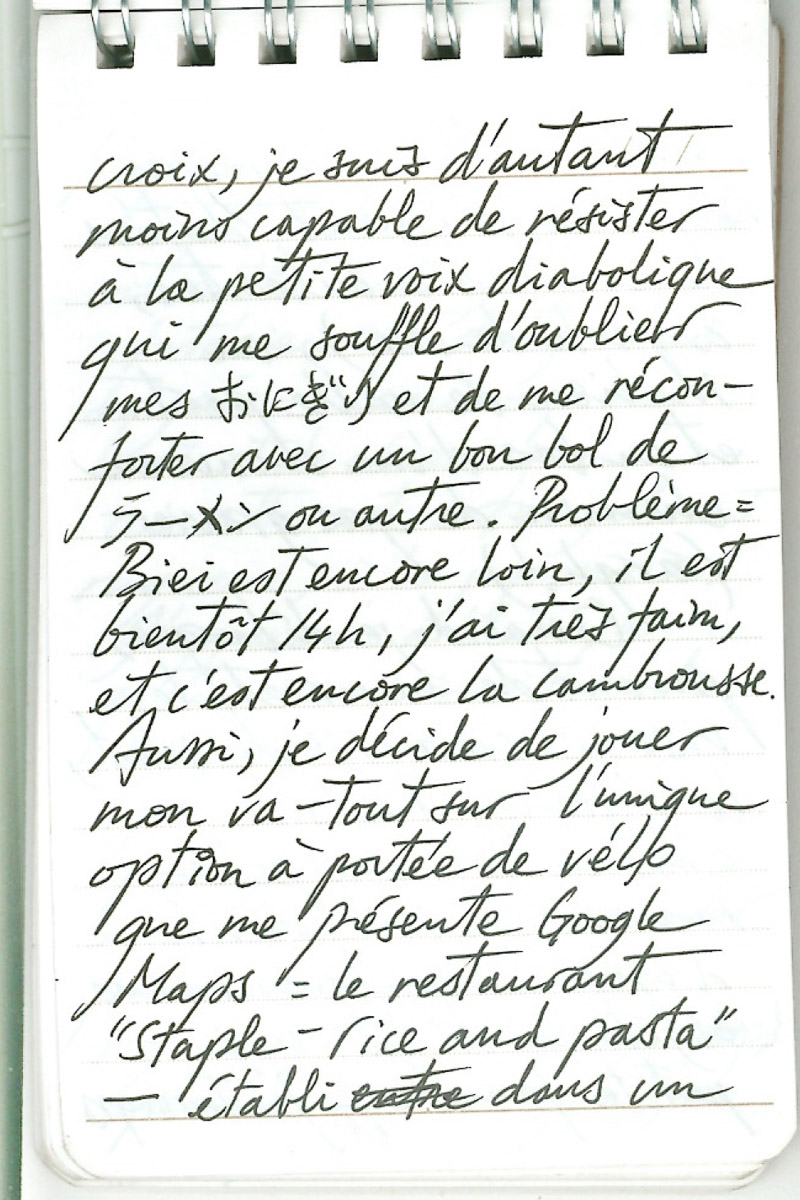 croix, je suis d'autant
moins capable de résister
à la petite voix diabolique
qui me souffle d'oublier
mes おにぎり et de me récon-
forter avec un bon bol de
ラーメン ou autre. Problème =
Biei est encore loin, il est
bientôt 14h, j'ai très faim,
et c'est encore la cambrousse.
Aussi, je décide de jouer
mon va-tout sur l'unique
option à portée de vélo
que me présente Google
Maps = le restaurant
"Staple - rice and pasta"
— établi entre dans un